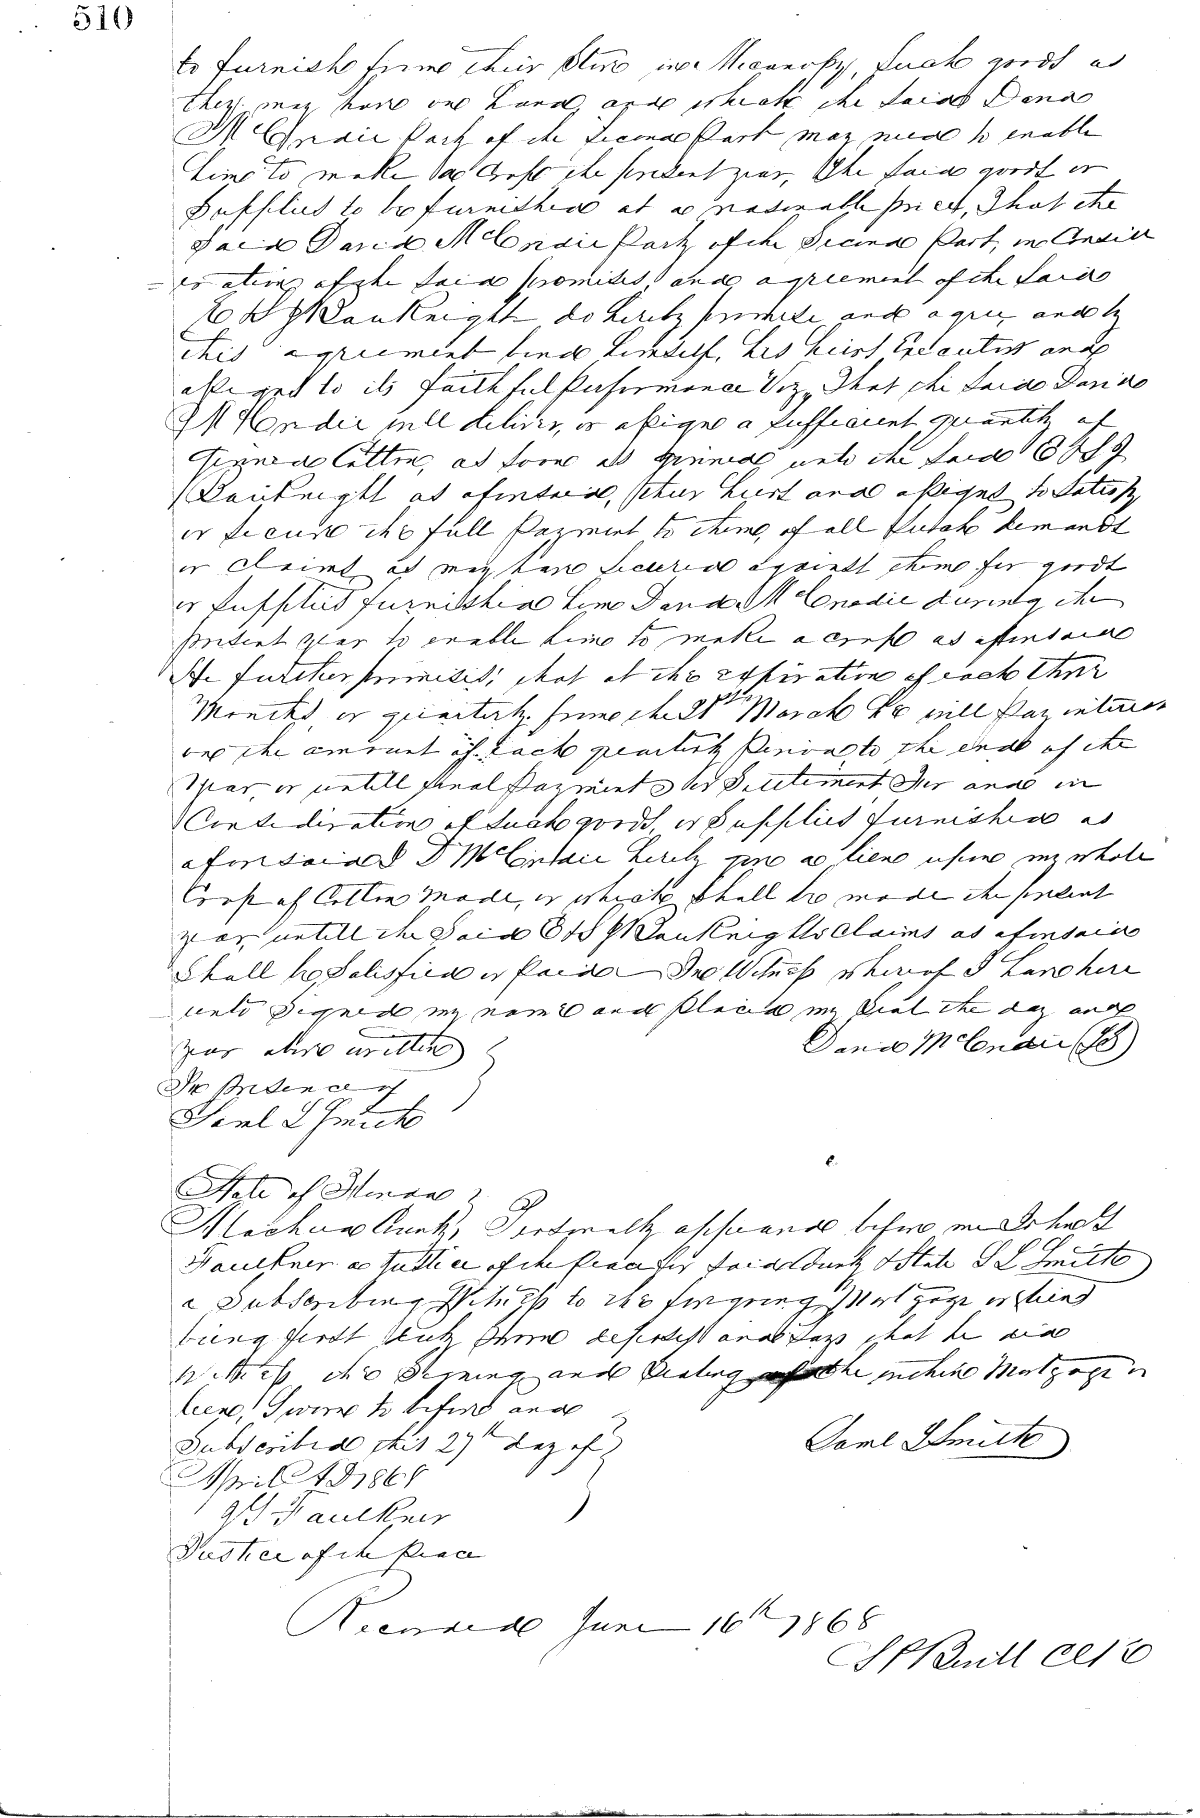 510
to furnish from their Store in Micanopy, Such goods as
they may have on hand, and which the Said David
McCredie Party of the Second Part may need to enable
him to make a Crop the present year, The Said goods or
Supplies to be furnished at a reasonable prices, That the
Said David McCredie Party of the Second Part, in Consid
eration of the Said promises, and agreement of the Said
E & S J Bauknight do hereby promise and agree, and by
this agreement bind himself, his heirs, Executors and
assigns to its faithful Performance Viz, That the Said David
McCredie will deliver, or assign a Sufficient quantity of
Ginned Cotton, as Soon as ginned unto the Said E & S J
Bauknight as aforesaid, their heirs and assigns to Satisfy
or Secure the full Payment to them, of all Such demands
or Claims as may have Secured against them for goods
or Supplies furnished him David McCredie during the
present year to enable him to make a crop as aforesaid
He further promises, that at the expiration of each three
Months, or quarterly from the 21st March he will Pay interest
on the amount of each quarterly Period to the end of the
Year, or untill final Payment or Settlement For and in
Consideration of Such goods, or Supplies furnished as
aforesaid I D McCredie hereby give a lien upon my whole
Crop of Cotton Made, or which Shall be made the present
year, untill the Said E & S J Bauknights Claims as aforesaid
Shall be Satisfied or Paid In Witness whereof I have here
unto Signed my name and Placed my Seal the day and
year above written
David McCredie (LS)
In presence of
Saml L Smith
State of Florida
Alachua County, Personally appeared before me John S
Faulkner a Justice of the Peace for Said County & State S L Smith
a Subscribing Witness to the foregoing Mortgage or lien
being first duly Sworn deposes and Says that he did
Witness the Signing and Sealing of the within Mortgage or
lien, Sworn to before and
Subscribed this 27th day of
Saml L Smith
April AD 1868
J S Faulkner
Justice of the Peace
Recorded June 16th 1868